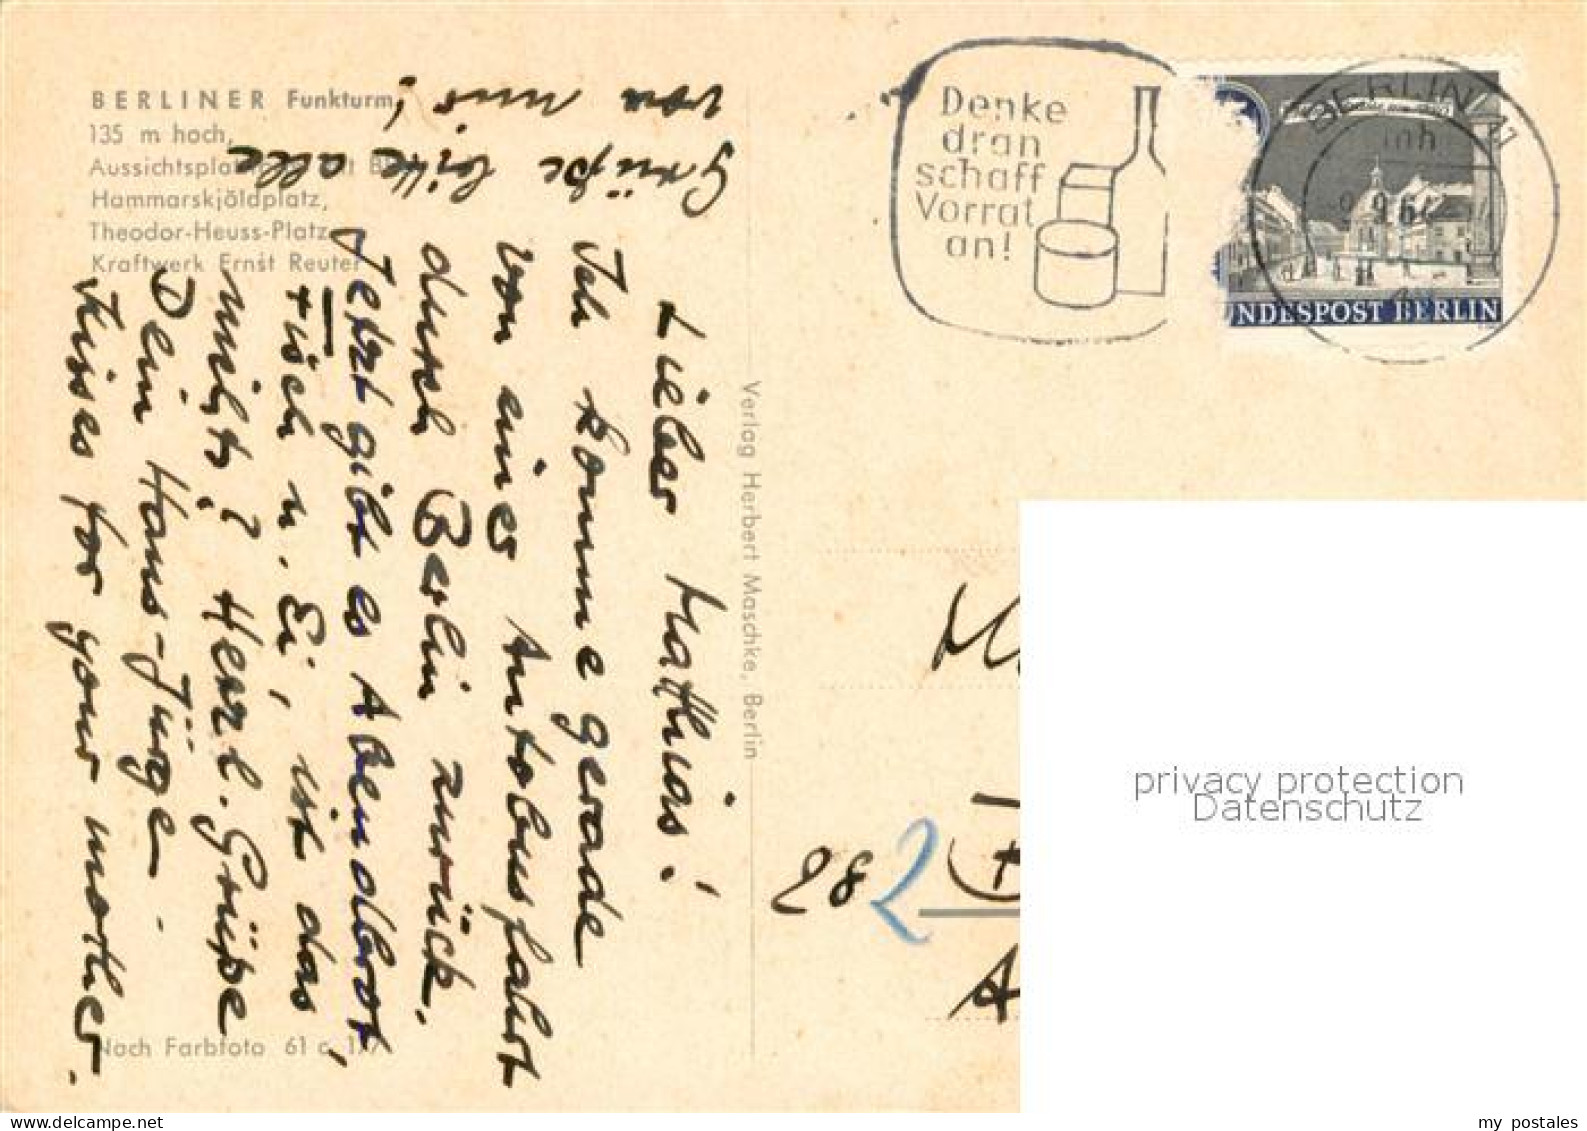 BERLINER Funkturm,
135 m hoch,
Aussichtsplat
Hammarskjöldplatz,
Theodor-Heuss-Platz,
Kraftwerk Ernst Reuter
Lieber Matthias!
Ich komme gerade
von einer Autobusfahrt
durch Berlin zurück.
Jetzt gibt es Abendbrot,
u. Ei, ist das
nichts? Herzl. Grüße
Dein Hans-Jürge
Kisses for your mother.
Grüße bitte alle
von mir!
Nach Farbfoto 61 c
Verlag Herbert Maschke, Berlin
Denke
dran
schaff
Vorrat
an!
BERLIN 11
9.9.64
NDESPOST BERLIN
28 2
privacy protection
Datenschutz
my postales